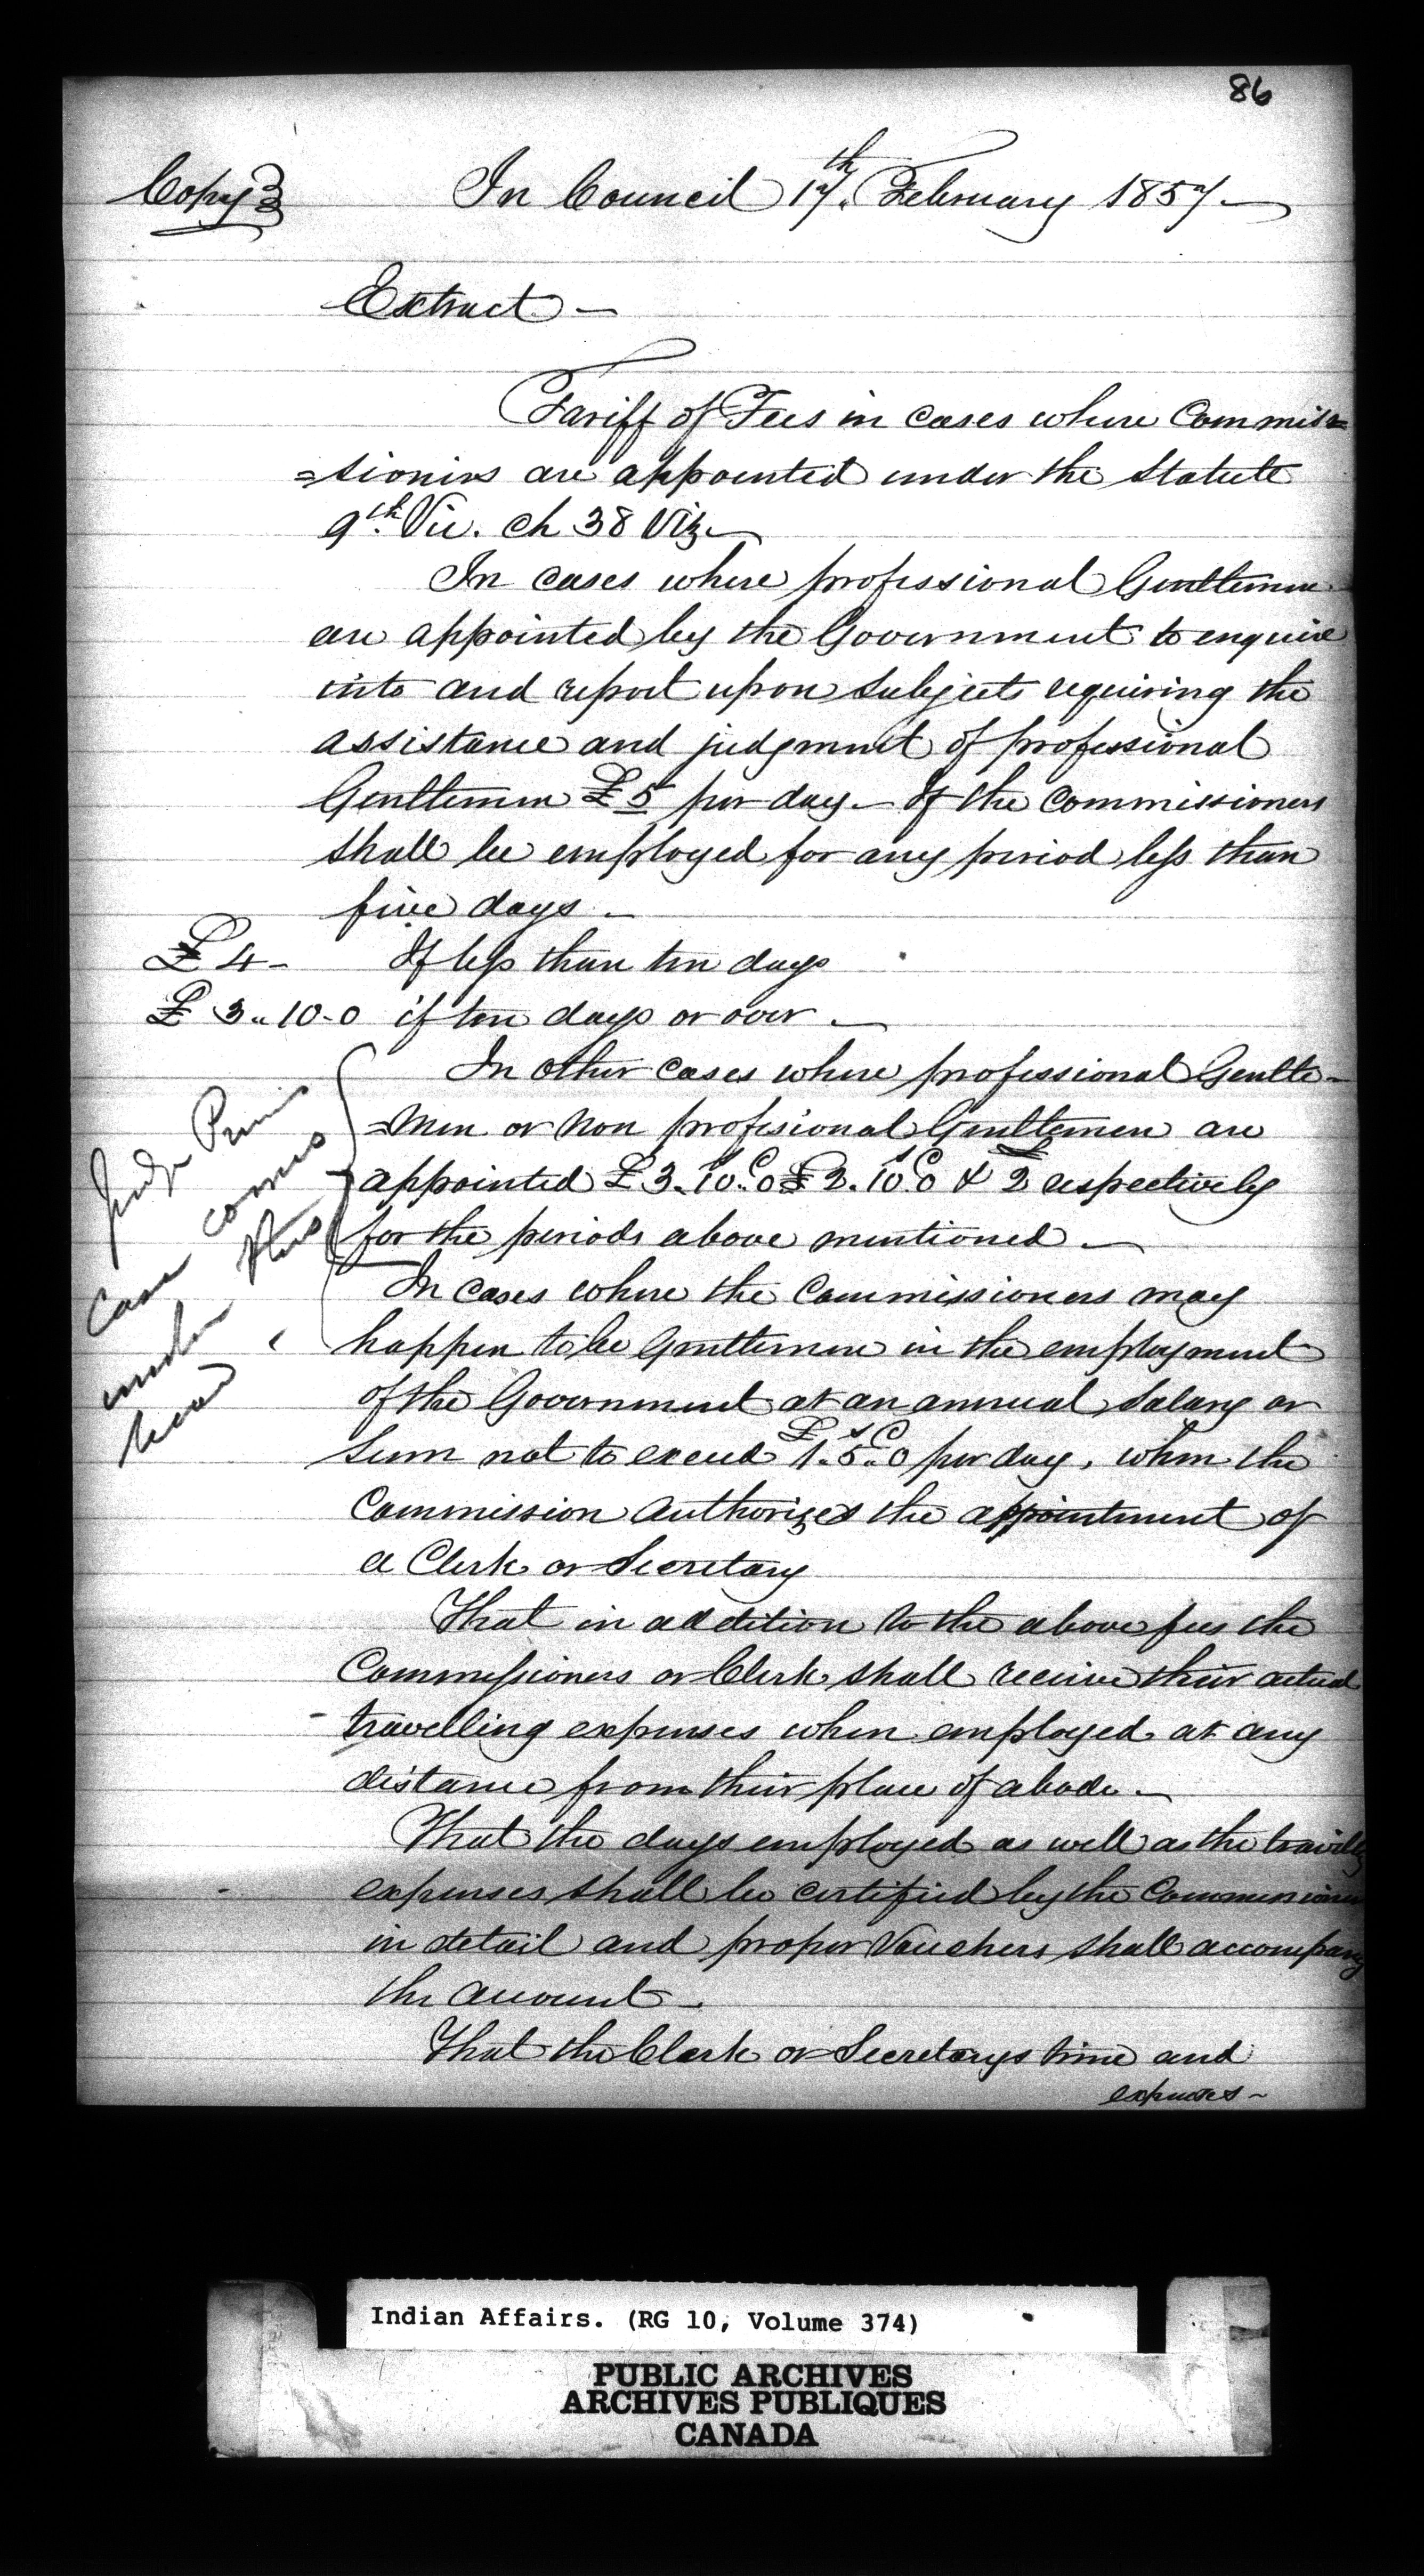 86
Copy}
In Council 17th. February 1857 —
Extract —
Tariff of Fees in cases where Commis=
=sioners are appointed under the Statute
9th. Vic. ch 38 Viz —
In cases where professional Gentlemen
are appointed by the Government to enquire
into and report upon subjects requiring the
assistance and judgment of professional
Gentlemen £5 per day — If the Commissioners
shall be employed for any period less than
five days —
£ 4 — If less than ten days
£ 3 .. 10 - 0 if ten days or over —
In other cases where professional Gentle-
=men or non profesional Gentlemen are
appointed £3. 10. 0 £2. 10. 0 & £2 respectively
for the periods above mentioned —
Judge
case comes
under this
head
In cases where the Commissioners may
happen to be Gentlemen in the employment
of the Government at an annual Salary or
Sum not to exceed £1. 5s. 0d per day, when the
Commission authorizes the appointment of
a Clerk or Secretary
That in addition to the above fees the
Commissioners or Clerk shall receive their actual
travelling expenses when employed at any
distance from their place of abode —
That the days employed as well as the travelling
expenses shall be certified by the Commissioners
in detail and proper Vouchers shall accompany
the account —
That the Clerk or Secretarys time and
expenses —
Indian Affairs. (RG 10, Volume 374)
PUBLIC ARCHIVES
ARCHIVES PUBLIQUES
CANADA